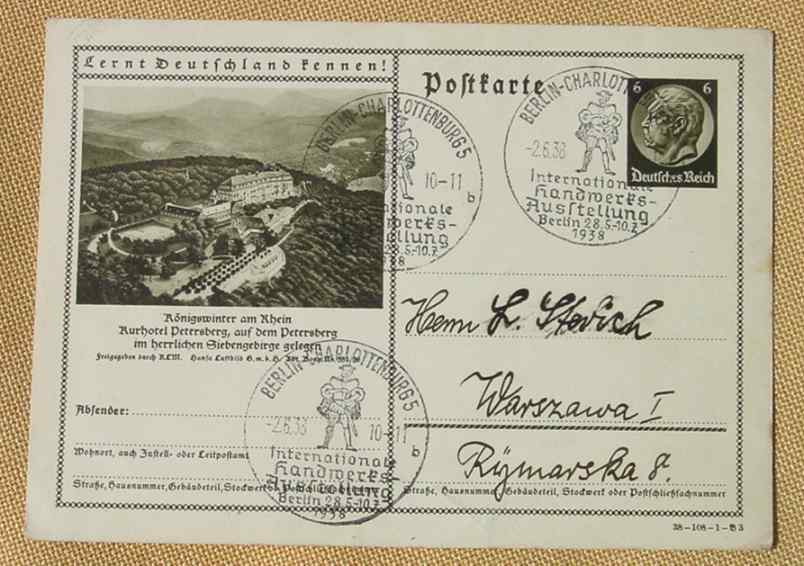 Lernt Deutschland kennen!
Königswinter am Rhein
Kurhotel Petersberg, auf dem Petersberg
im herrlichen Siebengebirge gelegen
Freigegeben durch RLM. Hansa Luftbild G.m.b.H.
Absender:
Wohnort, auch Zustell- oder Leitpostamt
Straße, Hausnummer, Gebäudeteil, Stockwerk oder Postschließfachnummer
BERLIN-CHARLOTTENBURG 5
-2.6.38 10-11
b
Internationale
Handwerks-
Ausstellung
Berlin 28.5.-10.7.
1938
BERLIN-CHARLOTTENBURG 5
10-11
b
Handwerks-
Ausstellung
28.5.-10.7.
Postkarte
BERLIN-CHARLOTT
-2.6.38
Internationale
Handwerks-
Ausstellung
Berlin 28.5.-10.7.
1938
6 6
Deutsches Reich
Herrn
Warszawa I
Rymarska 8.
Straße, Hausnummer, Gebäudeteil, Stockwerk oder Postschließfachnummer
38-108-1-B3